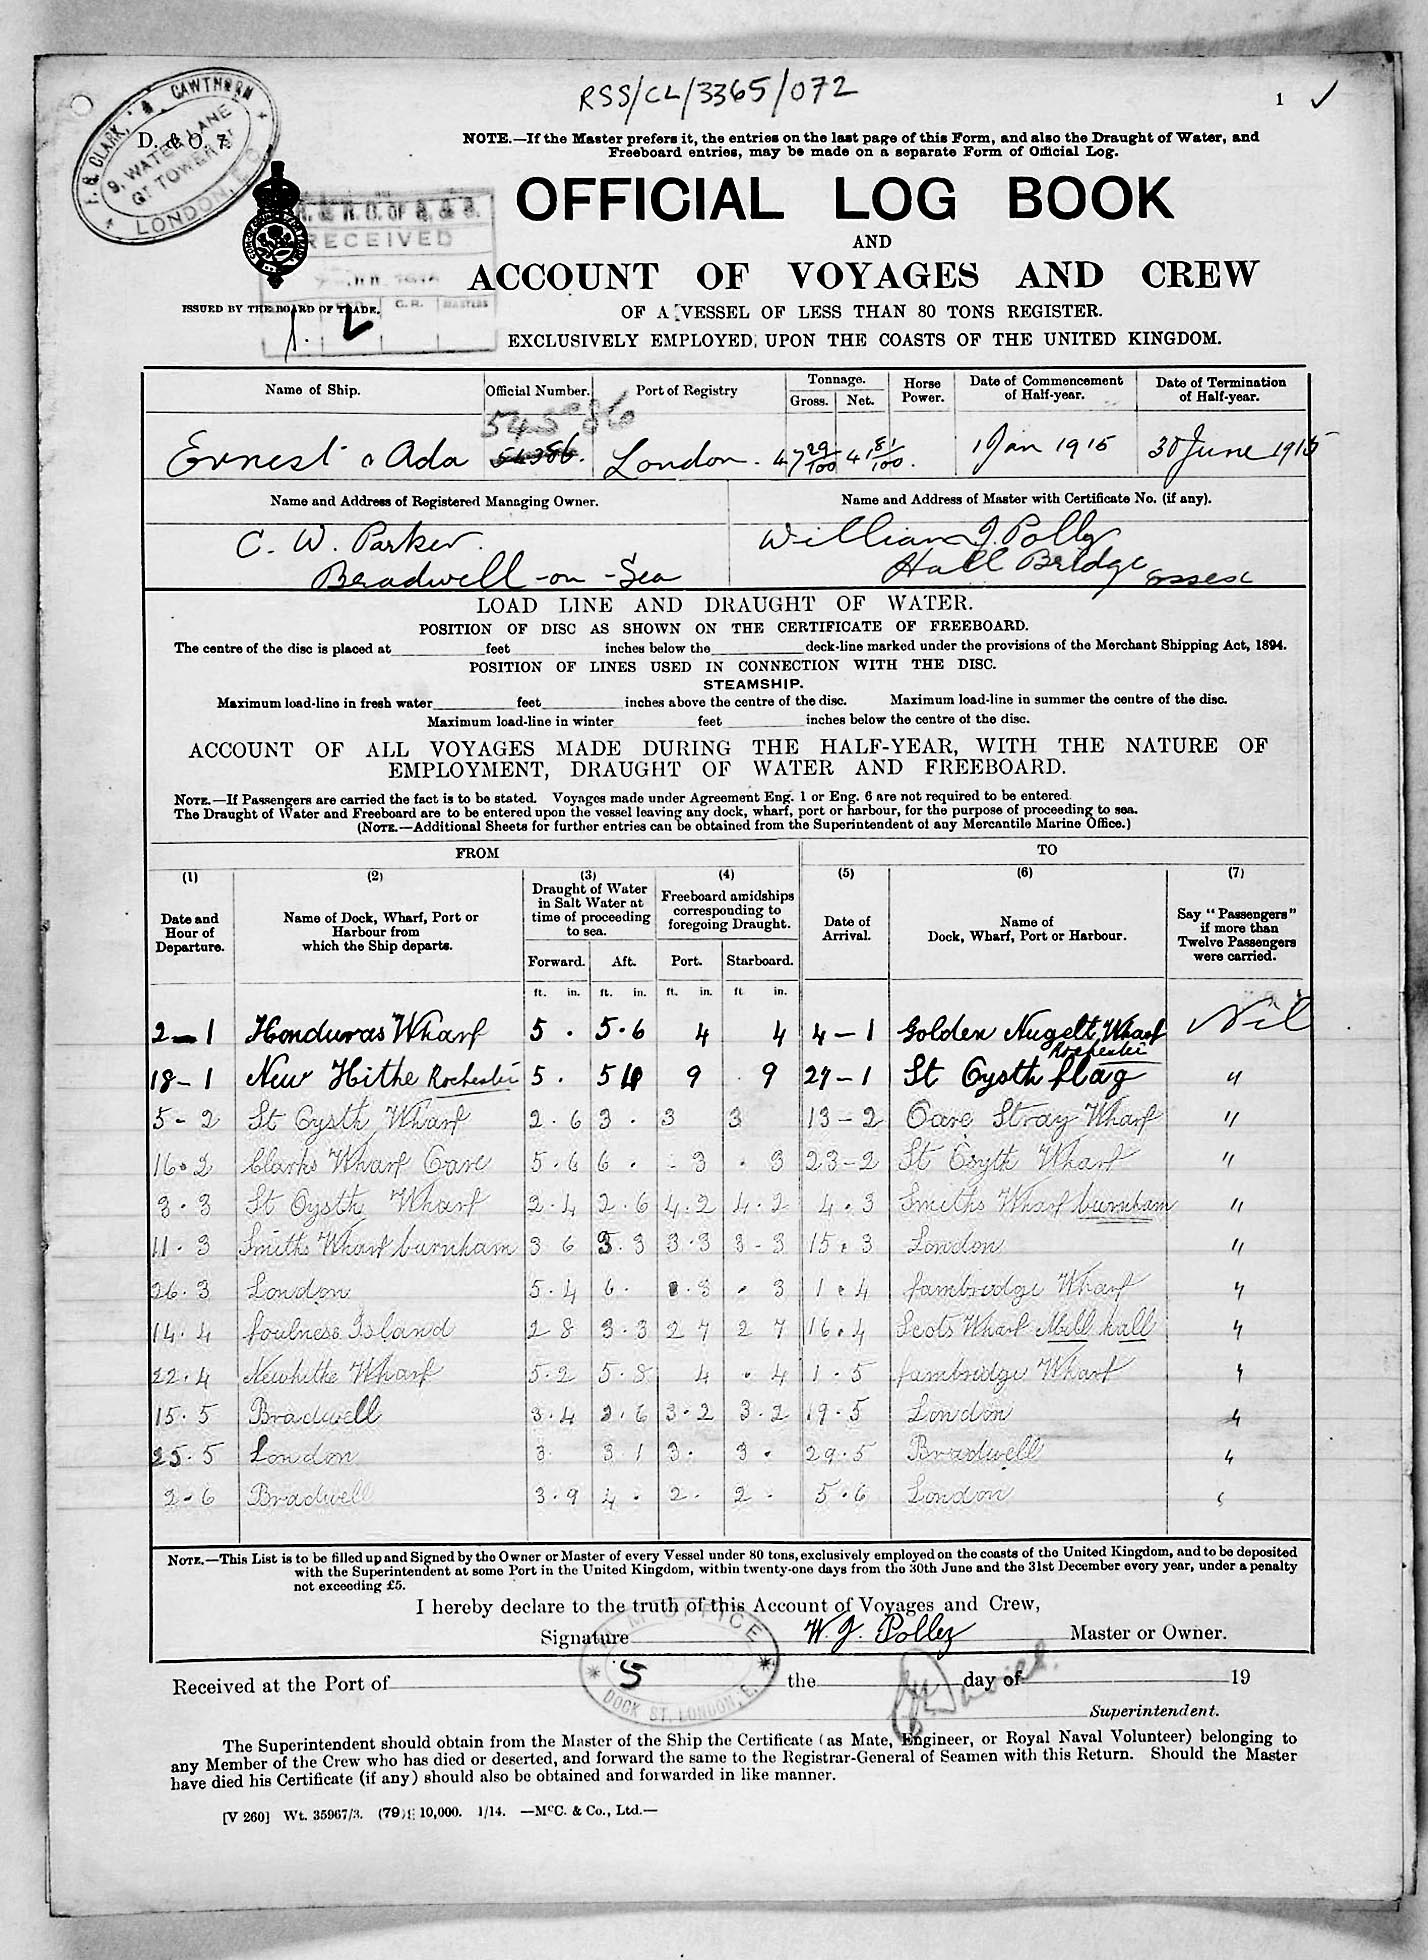 RSS/CL/3365/072
1 ✓
T. G. CLARK, & CAWTHORN
9, WATER LANE
GT TOWER ST
LONDON, E.C.
NOTE.—If the Master prefers it, the entries on the last page of this Form, and also the Draught of Water, and
Freeboard entries, may be made on a separate Form of Official Log.
OFFICIAL LOG BOOK
AND
ACCOUNT OF VOYAGES AND CREW
OF A VESSEL OF LESS THAN 80 TONS REGISTER.
EXCLUSIVELY EMPLOYED UPON THE COASTS OF THE UNITED KINGDOM.
RECEIVED
ISSUED BY THE BOARD OF TRADE.
1. 2
Name of Ship. Official Number. Port of Registry Tonnage. Gross. Net. Horse Power. Date of Commencement of Half-year. Date of Termination of Half-year.
54586
Ernest & Ada London 47 29/100 41 81/100 1 Jan 1915 30 June 1915
Name and Address of Registered Managing Owner. Name and Address of Master with Certificate No. (if any).
C. W. Parker. William J. Polley
Bradwell-on-Sea Hall Bridge Essex
LOAD LINE AND DRAUGHT OF WATER.
POSITION OF DISC AS SHOWN ON THE CERTIFICATE OF FREEBOARD.
The centre of the disc is placed at feet inches below the deck-line marked under the provisions of the Merchant Shipping Act, 1894.
POSITION OF LINES USED IN CONNECTION WITH THE DISC.
STEAMSHIP.
Maximum load-line in fresh water feet inches above the centre of the disc. Maximum load-line in summer the centre of the disc.
Maximum load-line in winter feet inches below the centre of the disc.
ACCOUNT OF ALL VOYAGES MADE DURING THE HALF-YEAR, WITH THE NATURE OF
EMPLOYMENT, DRAUGHT OF WATER AND FREEBOARD.
NOTE.—If Passengers are carried the fact is to be stated. Voyages made under Agreement Eng. 1 or Eng. 6 are not required to be entered.
The Draught of Water and Freeboard are to be entered upon the vessel leaving any dock, wharf, port or harbour, for the purpose of proceeding to sea.
(NOTE.—Additional Sheets for further entries can be obtained from the Superintendent of any Mercantile Marine Office.)
FROM TO
(1) (2) (3) (4) (5) (6) (7)
Date and Hour of Departure. Name of Dock, Wharf, Port or Harbour from which the Ship departs. Draught of Water in Salt Water at time of proceeding to sea. Freeboard amidships corresponding to foregoing Draught. Date of Arrival. Name of Dock, Wharf, Port or Harbour. Say "Passengers" if more than Twelve Passengers were carried.
Forward. Aft. Port. Starboard.
ft. in. ft. in. ft. in. ft in.
2-1 Honduras Wharf 5 . 5.6 4 4 4-1 Golden Nugelt Wharf Rochester Nil
18-1 New Hithe Rochester 5 . 9 9 29-1 St Oysth flag "
5-2 St Oysth Wharf 2.6 3. 3 3 13-2 Oare Stray Wharf "
16.2 Clarks Wharf Oare 5.6 6. 3 . 3 23-2 St Osyth Wharf "
3.3 St Oysth Wharf 2.4 2.6 4.2 4.2 4.3 Smiths Wharf burnham "
11.3 Smiths Wharf burnham 3 6 3.3 3.3 3-3 15.3 London "
26.3 London 5.4 6. .3 . 3 1.4 fambridge Wharf "
14.4 foulness Island 2 8 3.3 2 7 2 7 16.4 Scots Wharf Mill hall "
22.4 Newhithe Wharf 5.2 5.8 4 . 4 1.5 fambridge Wharf "
15.5 Bradwell 3.4 3.6 3.2 3.2 19.5 London "
25.5 London 3 3 1 3. 3. 29.5 Bradwell "
2-6 Bradwell 3.9 4. 2. 2. 5.6 London "
NOTE.—This List is to be filled up and Signed by the Owner or Master of every Vessel under 80 tons, exclusively employed on the coasts of the United Kingdom, and to be deposited
with the Superintendent at some Port in the United Kingdom, within twenty-one days from the 30th June and the 31st December every year, under a penalty
not exceeding £5.
I hereby declare to the truth of this Account of Voyages and Crew,
Signature W. J. Polley Master or Owner.
Received at the Port of the day of 19
OFFICE
5
DOCK ST. LONDON, E.
Superintendent.
The Superintendent should obtain from the Master of the Ship the Certificate (as Mate, Engineer, or Royal Naval Volunteer) belonging to
any Member of the Crew who has died or deserted, and forward the same to the Registrar-General of Seamen with this Return. Should the Master
have died his Certificate (if any) should also be obtained and forwarded in like manner.
[V 260] Wt. 35967/3. (79) 10,000. 1/14. —McC. & Co., Ltd.—